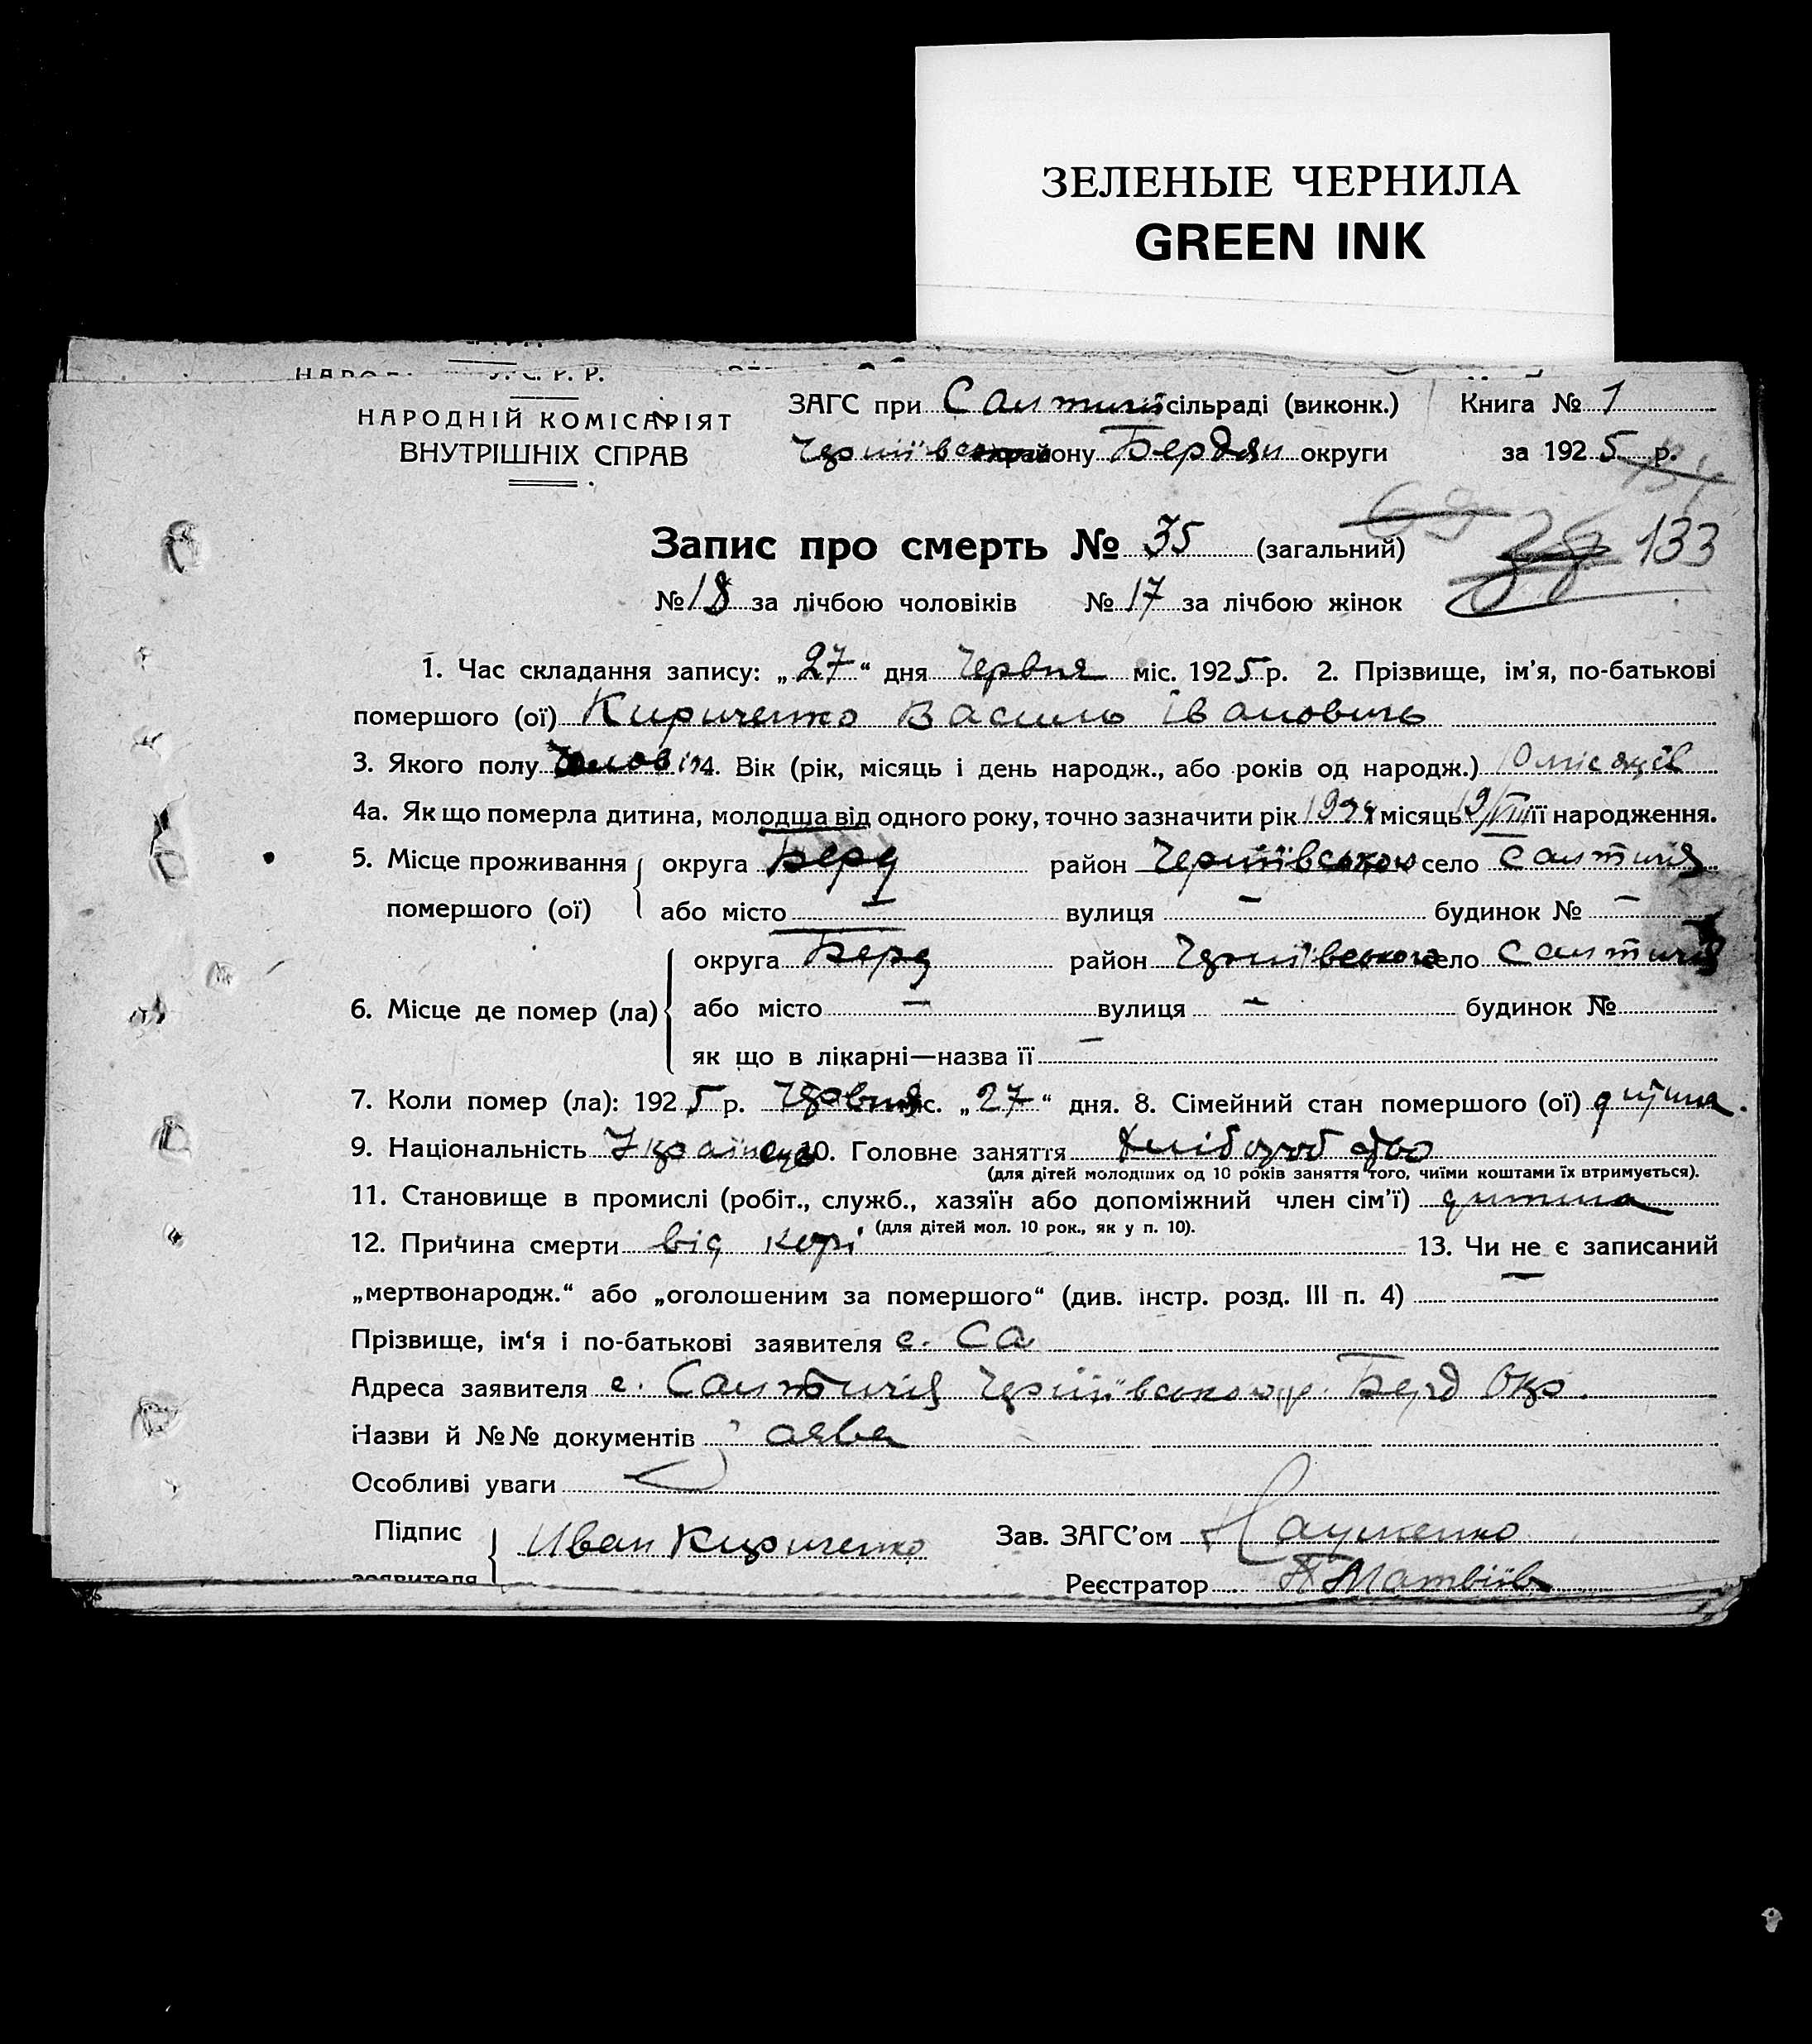 ЗЕЛЕНЫЕ ЧЕРНИЛА
GREEN INK
НАРОДНІЙ КОМІСАРІЯТ
ВНУТРІШНІХ СПРАВ
ЗАГС при сільраді (виконк.) Книга № 1
району Бердян округи за 1925 р.
Запис про смерть № 35 (загальний)
133
№ 18 за лічбою чоловіків № 17 за лічбою жінок
1. Час складання запису: „27“ дня Червня міс. 1925 р. 2. Прізвище, ім’я, по-батькові
помершого (ої) Кириченко Василь Івановичь
3. Якого полу 4. Вік (рік, місяць і день народж., або років од народж.) 10 місяців
4а. Як що померла дитина, молодша від одного року, точно зазначити рік 1924 місяць 19/VIII її народження.
5. Місце проживання округа Берд район Чернііვსького село Салтичія
помершого (ої) або місто – вулиця – будинок № –
округа Берд район село Салтичія
6. Місце де помер (ла) або місто – вулиця – будинок №
як що в лікарні—назва її –
7. Коли помер (ла): 1925 р. Червня міс. „27“ дня. 8. Сімейний стан помершого (ої) дитина.
9. Національність Українець 10. Головне заняття Хліборобство
(для дітей молодших од 10 років заняття того, чиїми коштами їх втримується).
11. Становище в промислі (робіт., служб., хазяїн або допоміжний член сім’ї) дитина
(для дітей мол. 10 рок., як у п. 10).
12. Причина смерти від корі 13. Чи не є записаний
„мертвонародж.“ або „оголошеним за помершого“ (див. інстр. розд. III п. 4) –
Прізвище, ім‘я і по-батькові заявителя с. Са
Адреса заявителя с. Салтичія р. Берд Окр.
Назви й №№ документів Заява
Особливі уваги
Підпис Иван Кириченко Зав. ЗАГС’ом Науменко
заявителя Реєстратор Матвіів